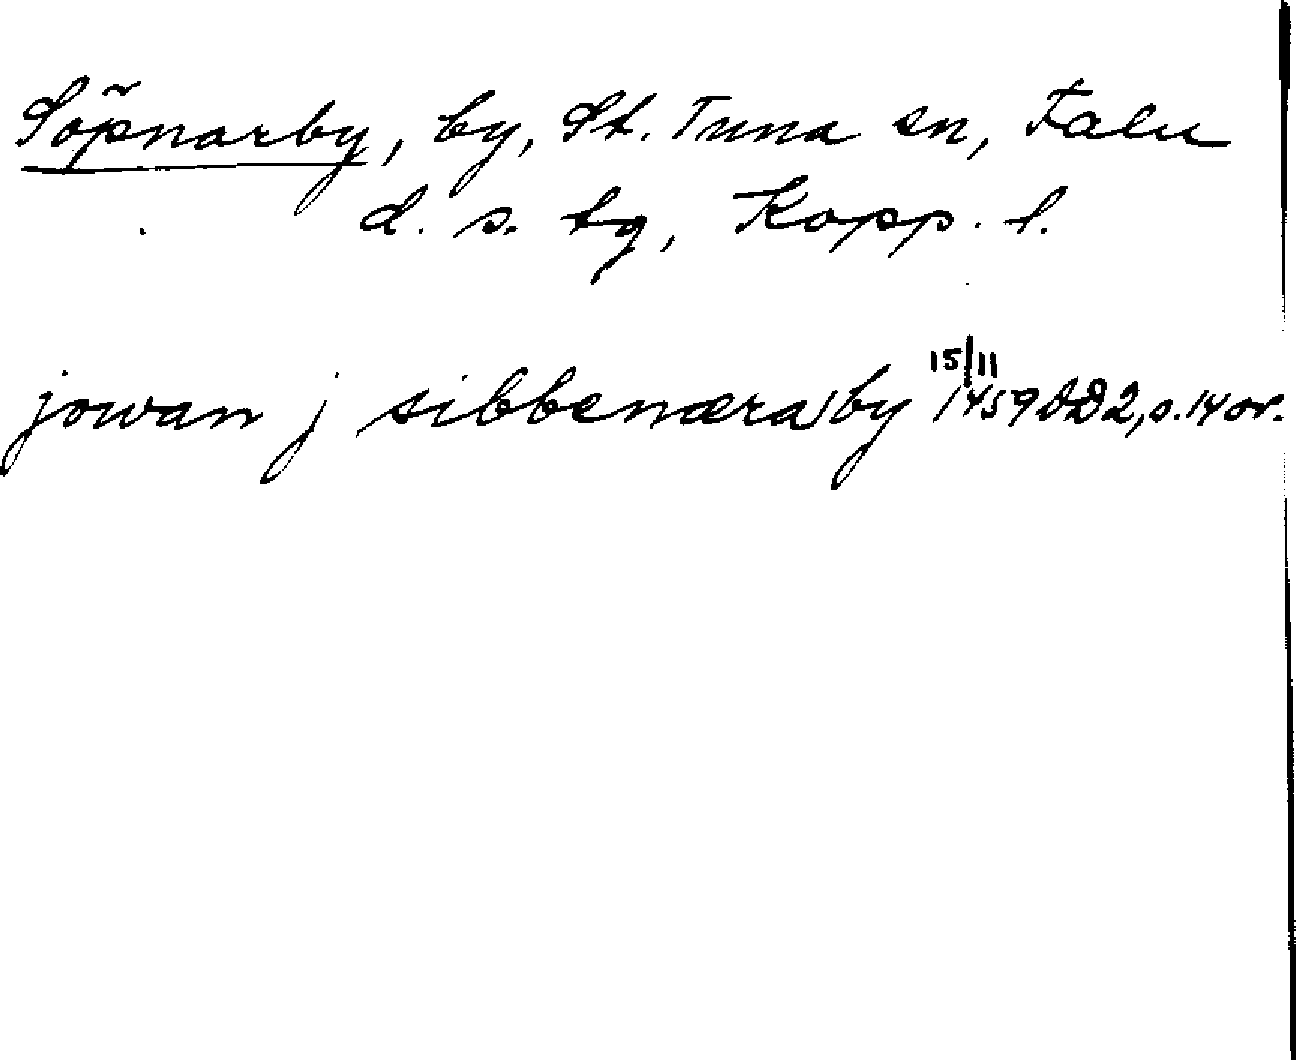 Söpnarby, by, St. Tuna sn, Falu
d. s. tg, Kopp. l.
jowan j sibbenæra by 15/11 1459 DD 2, s. 14 or.